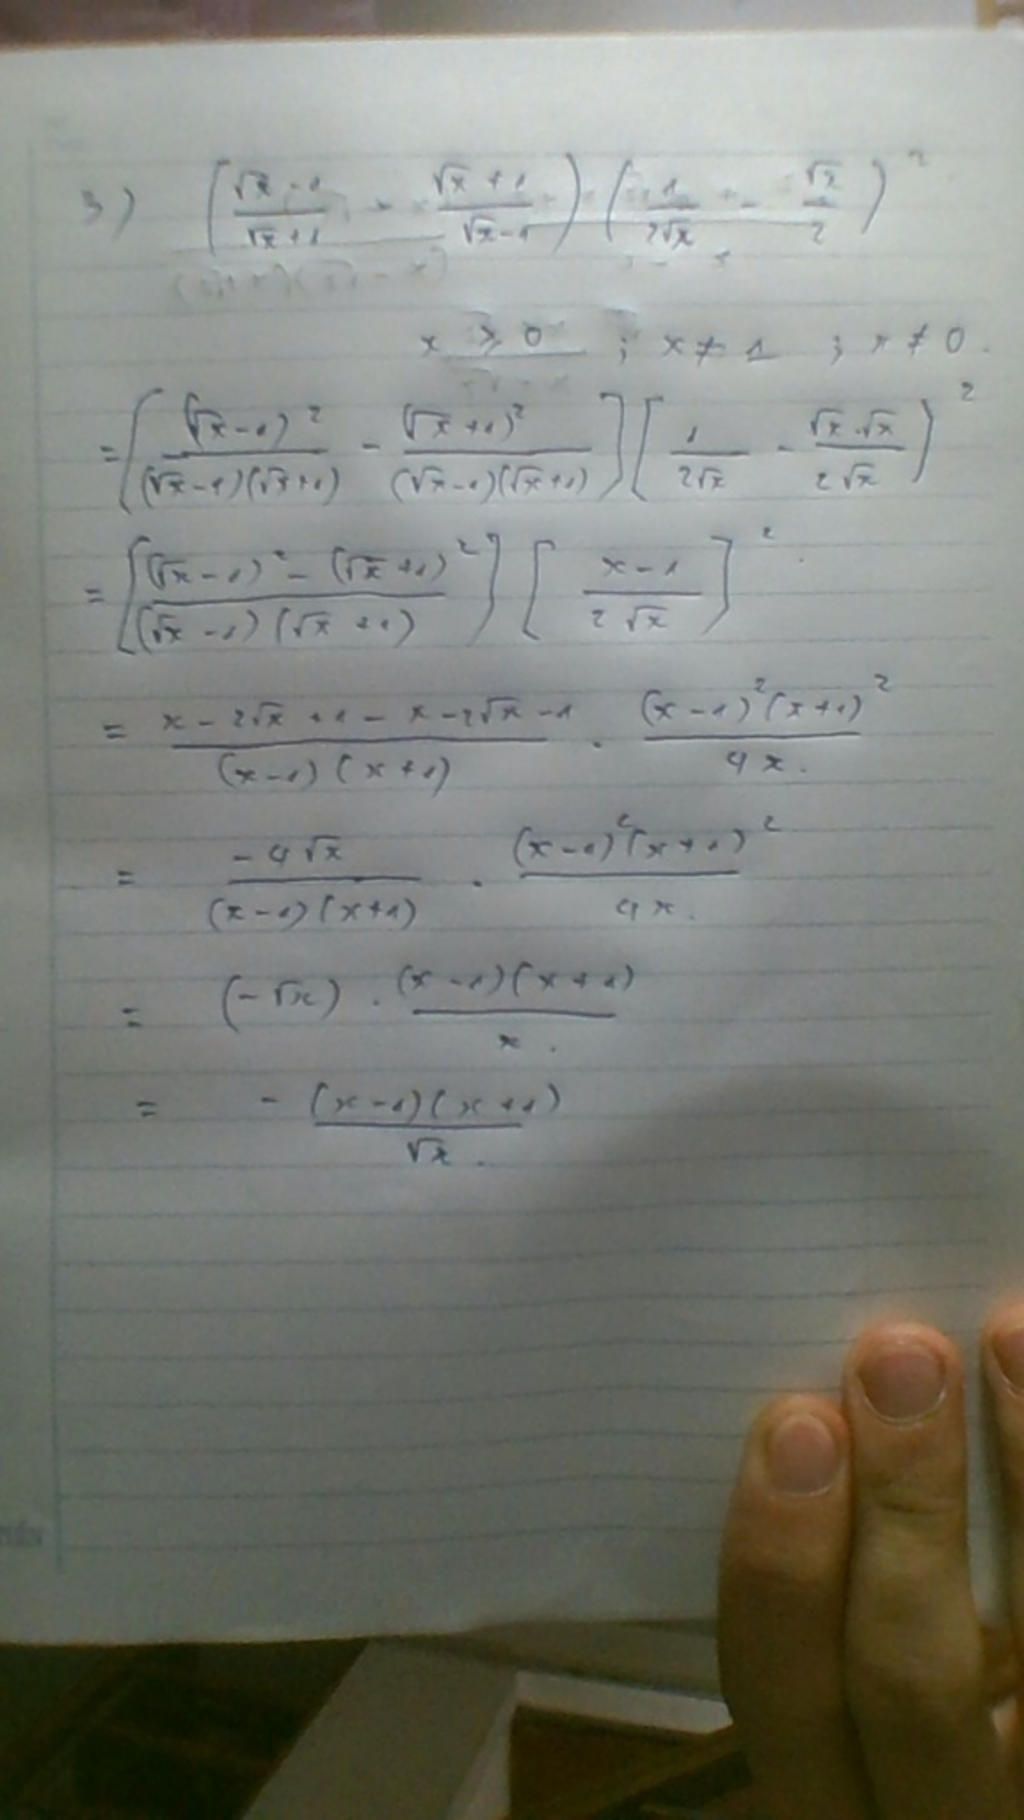 3) ( (√x - 1)/(√x + 1) - (√x + 1)/(√x - 1) ) ( 1/(2√x) - √x/2 )²
x ≥ 0 ; x ≠ 1 ; x ≠ 0.
= [ (√x - 1)²/((√x - 1)(√x + 1)) - (√x + 1)²/((√x - 1)(√x + 1)) ] [ 1/(2√x) - (√x . √x)/(2√x) ]²
= [ ((√x - 1)² - (√x + 1)²)/((√x - 1)(√x + 1)) ] [ (x - 1)/(2√x) ]²
= (x - 2√x + 1 - x - 2√x - 1)/((x - 1)(x + 1)) . ((x - 1)²(x + 1)²)/(4x).
= (-4√x)/((x - 1)(x + 1)) . ((x - 1)²(x + 1)²)/(4x).
= (-√x) . ((x - 1)(x + 1))/x.
= - ((x - 1)(x + 1))/√x.